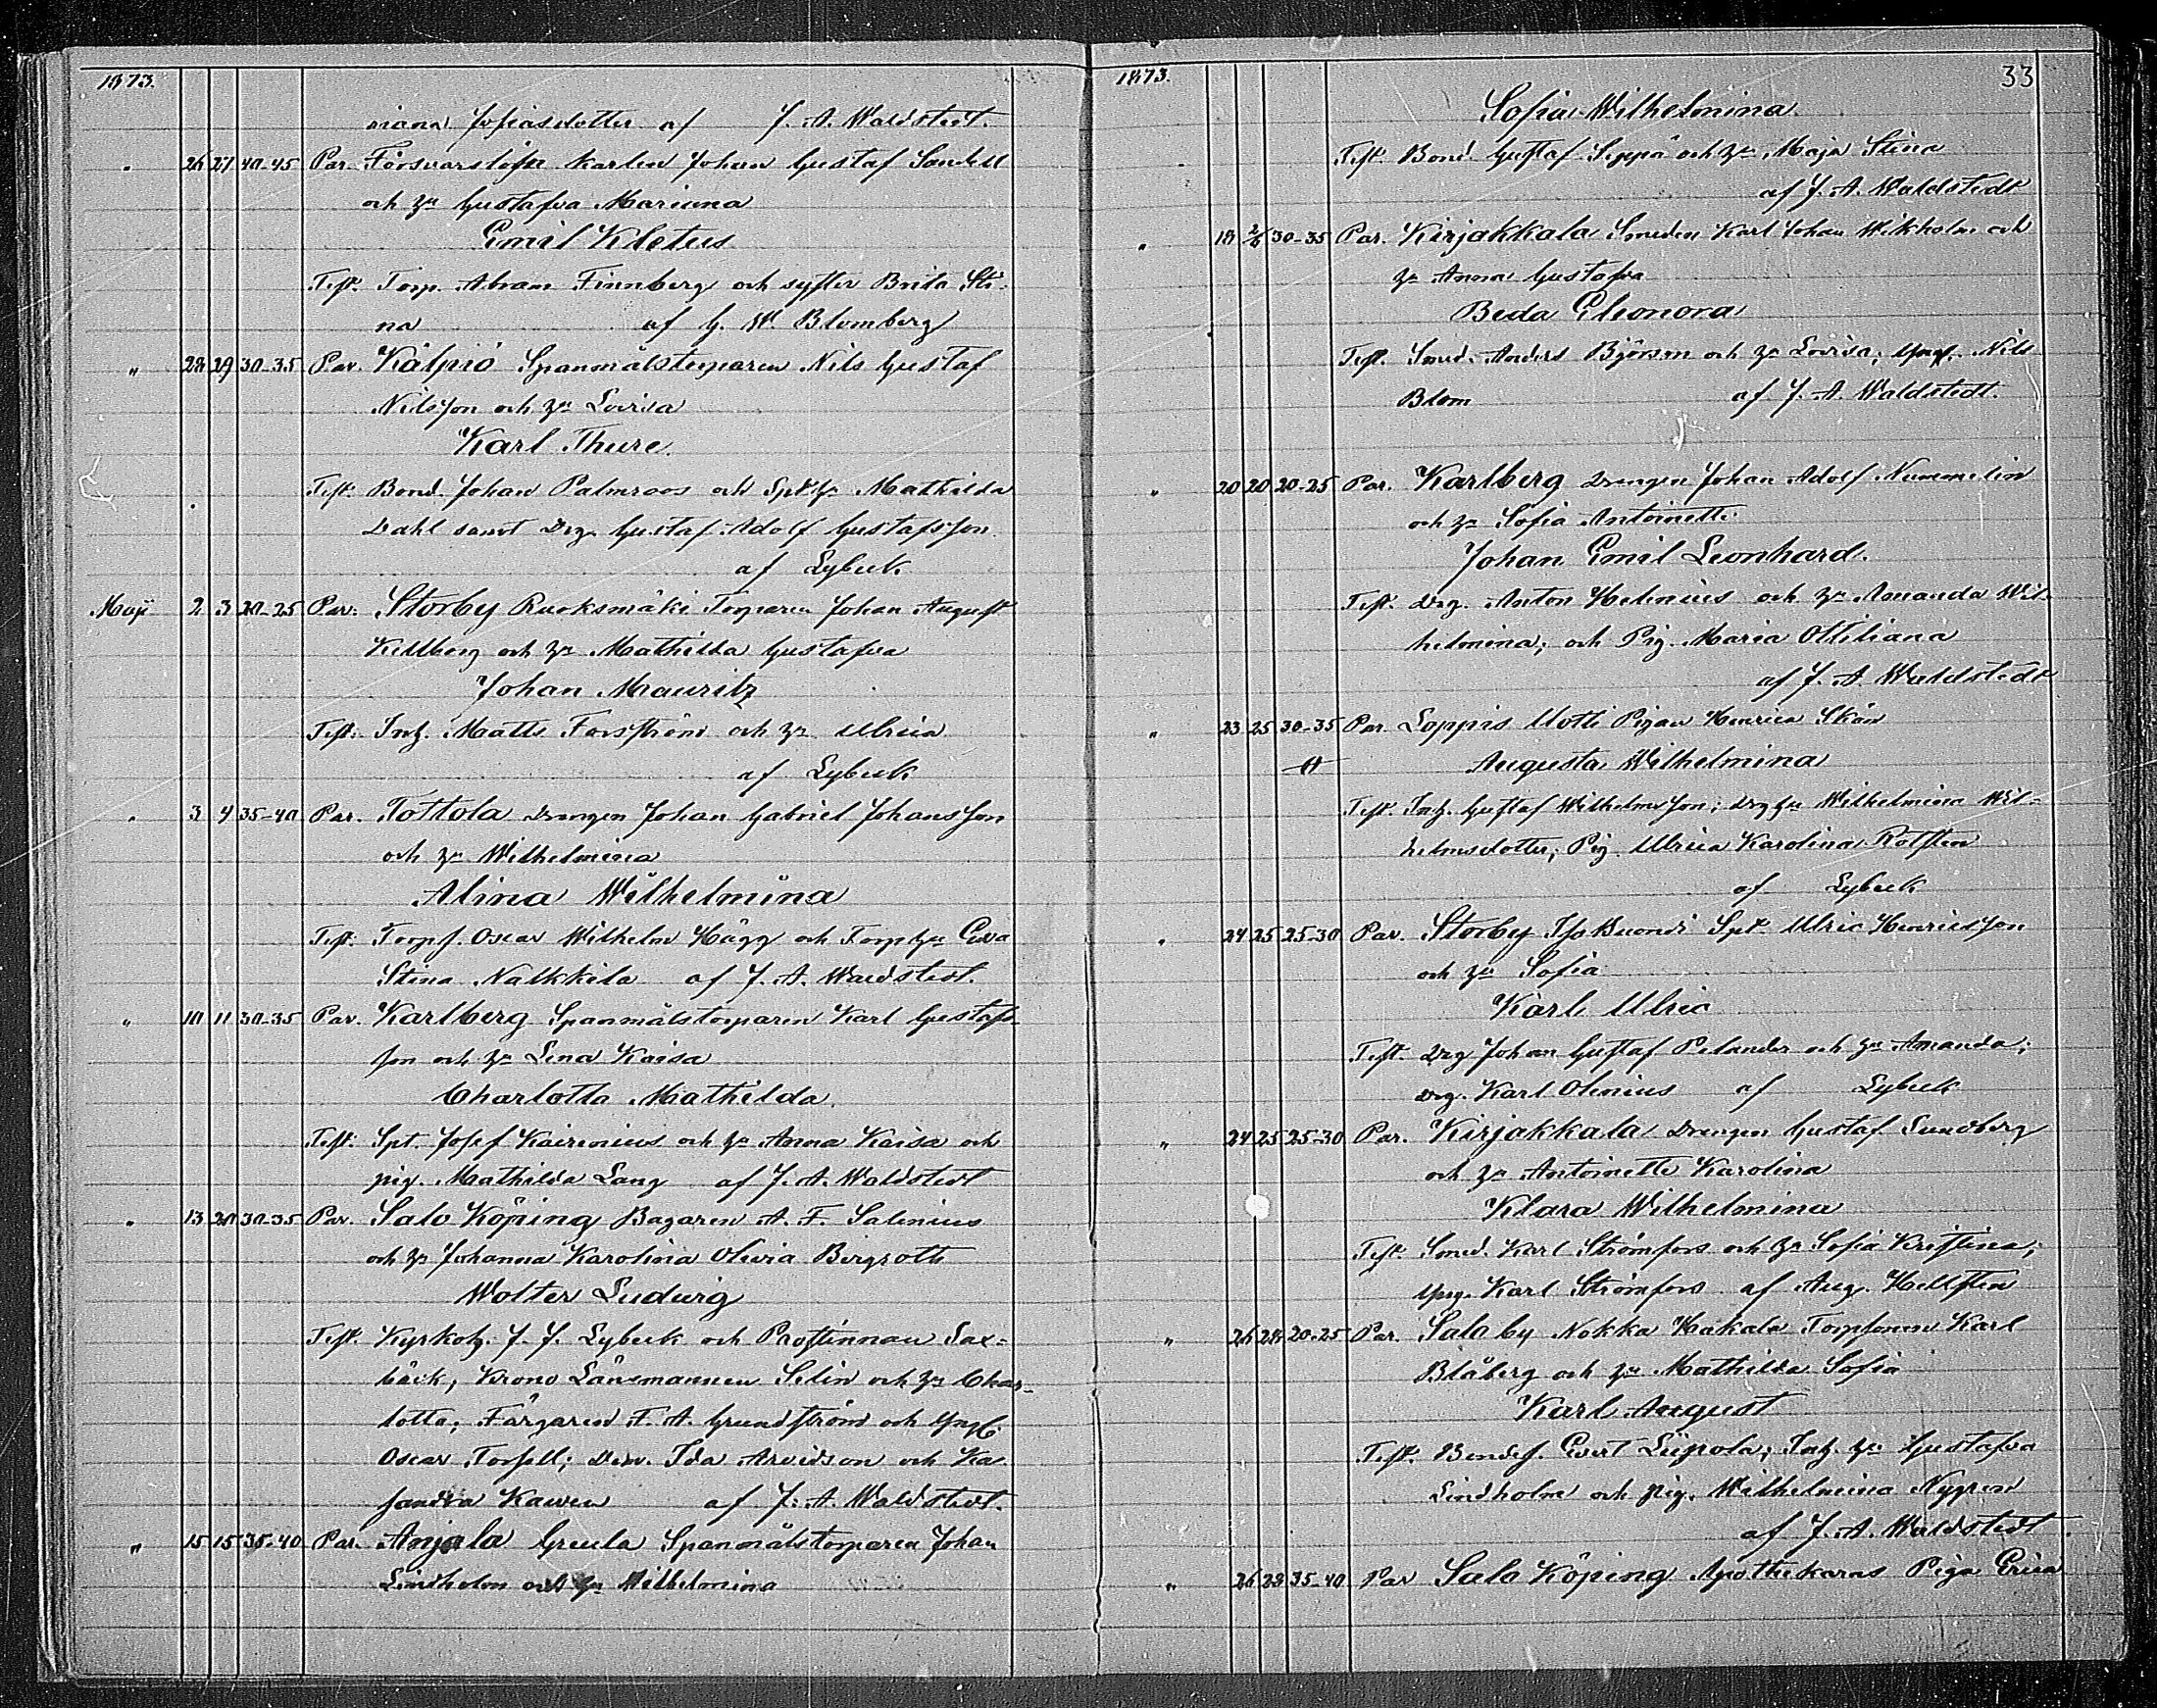 1873.
riana Josiasdotter af J. A. Waldstedt.
" 26 27 40-45 Par. Försvarslöse karlen Johan Gustaf Sandell
och hu Gustafva Mariana
Emil Kletus
Test. Torp. Abram Finnberg och syster Brita Sti-
na af G. W. Blomberg
" 28 29 30-35 Par. Kälpiö Spanmålstorparen Nils Gustaf
Nilsson och hu Lovisa
Karl Thure.
Test. Bond. Johan Palmroos och Spt.h. Mathilda
Dahl samt Drg. Gustaf Adolf Gustafsson.
af Lybeck
Maji 2 3 20-25 Par. Storby Ruoksmäki Torparen Johan August
Kellberg och hu Mathilda Gustafva
Johan Mauritz
Test. Inh. Matts Forsström och hu Ulrica
af Lybeck
" 3 4 35-40 Par. Tottola Drengen Johan Gabriel Johansson
och hu Wilhelmina
Alina Wilhelmina
Test. Torps. Oscar Wilhelm Hägg och Torp.hu Eva
Stina Nalkkila af J. A. Waldstedt.
" 10 11 30-35 Par. Karlberg Spanmålstorparen Karl Gustafs-
son och hu Lena Kaisa
Charlotta Mathilda.
Test. Spt. Josef Kairenius och hu Anna Kaisa och
pig. Mathilda Lang af J. A. Waldstedt
" 13 20 30-35 Par. Salo Köping Bagaren A. F. Salenius
och hu Johanna Karolina Olivia Bergroth
Wolter Ludvig
Test. Kyrkoh. J. J. Lybeck och Prostinnan Sax-
bäck, Krono Länsmannen Selin och hu Char-
lotta; Färgaren F. A. Grundström och Yngl.
Oscar Forsell; Dem. Ida Arvidson och Ka
sandra Kawen af J. A. Waldstedt.
" 15 15 35-40 Par. Anjala Greula Spanmålstorparen Johan
Lindholm och hu Wilhelmina
1873. 33
Sofia Wilhelmina
Test. Bond. Gustaf Seppä och hu Maja Stina
af J. A. Waldstedt
" 18 2/6 30-35 Par. Kirjakkala Smeden Karl Johan Wikholm och
hu Anna Gustafva
Beda Eleonora
Test. Smed. Anders Björson och hu Lovisa; Yngl. Nils
Blom af J. A. Waldstedt.
" 20 20 20-25 Par. Karlberg Drengen Johan Adolf Nummelin
och hu Sofia Antoinette
Johan Emil Leonhard.
Test. Drg. Anton Helenius och hu Amanda Wil-
helmina; och Pig. Maria Ottiliana
af J. A. Waldstedt
" 23 25 30-35 Par. Loppis Uotti Pigan Henrica Skön
Augusta Wilhelmina
Test. Inh. Gustaf Wilhelmsson; Drg.hu Wilhelmina Wil-
helmsdotter; Pig. Ulrica Karolina Rotsten
af Lybeck
" 24 25 25-30 Par. Storby Spt. Ulric Henricsson
och hu Sofia
Karl Ulric
Test. Drg Johan Gustaf Pelander och hu Amanda;
Drg. Karl Olenius af Lybeck
" 24 25 25-30 Par. Kirjakkala Drengen Gustaf Sundberg
och hu Antoinette Karolina
Klara Wilhelmina
Test. Smed. Karl Strömfors och hu Sofia Kristina;
Yng. Karl Strömfors af Aug. Hellsten
" 26 28 20-25 Par. Salo by Nokka Hakala Torpsonen Karl
Blåberg och hu Mathilda Sofia
Karl August
Test. Bondes. Evert Liipola; Inh. hu Gustafva
Lindholm och pig. Wilhelmina Nygren
af J. A. Waldstedt.
" 26 28 35-40 Par Salo Köping Apothekarns Piga Erica